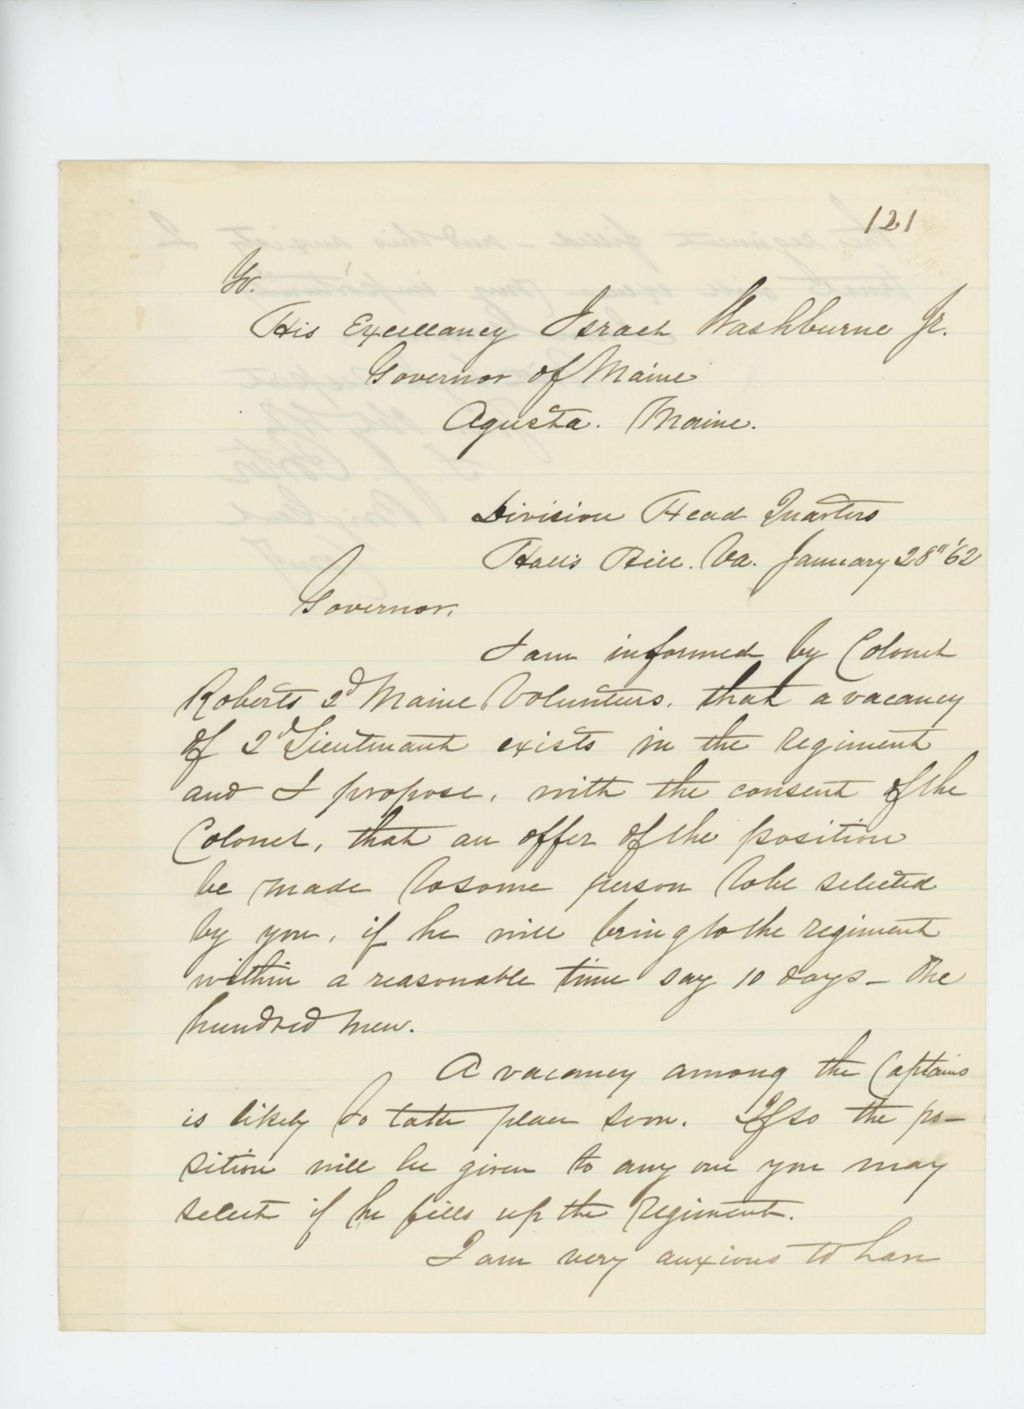 121
To.
His Excellancy Israel Washburne Jr.
Governor of Maine
Agusta. Maine.
Division Head Quarters
Hall's Hill. Va. January 28" '62
Governor,
I am informed by Colonel
Roberts 2d Maine Volunteers. that a vacancy
of 2d Lieutenant exists in the regiment
and I propose, with the consent of the
Colonel, that an offer of the position
be made to some person to be selected
by you, if he will bring to the regiment
within a reasonable time say 10 days - one
hundred men.
A vacancy among the Captains
is likely to take place soon. If so the po-
sition will be given to any one you may
select if he fills up the regiment.
I am very anxious to have